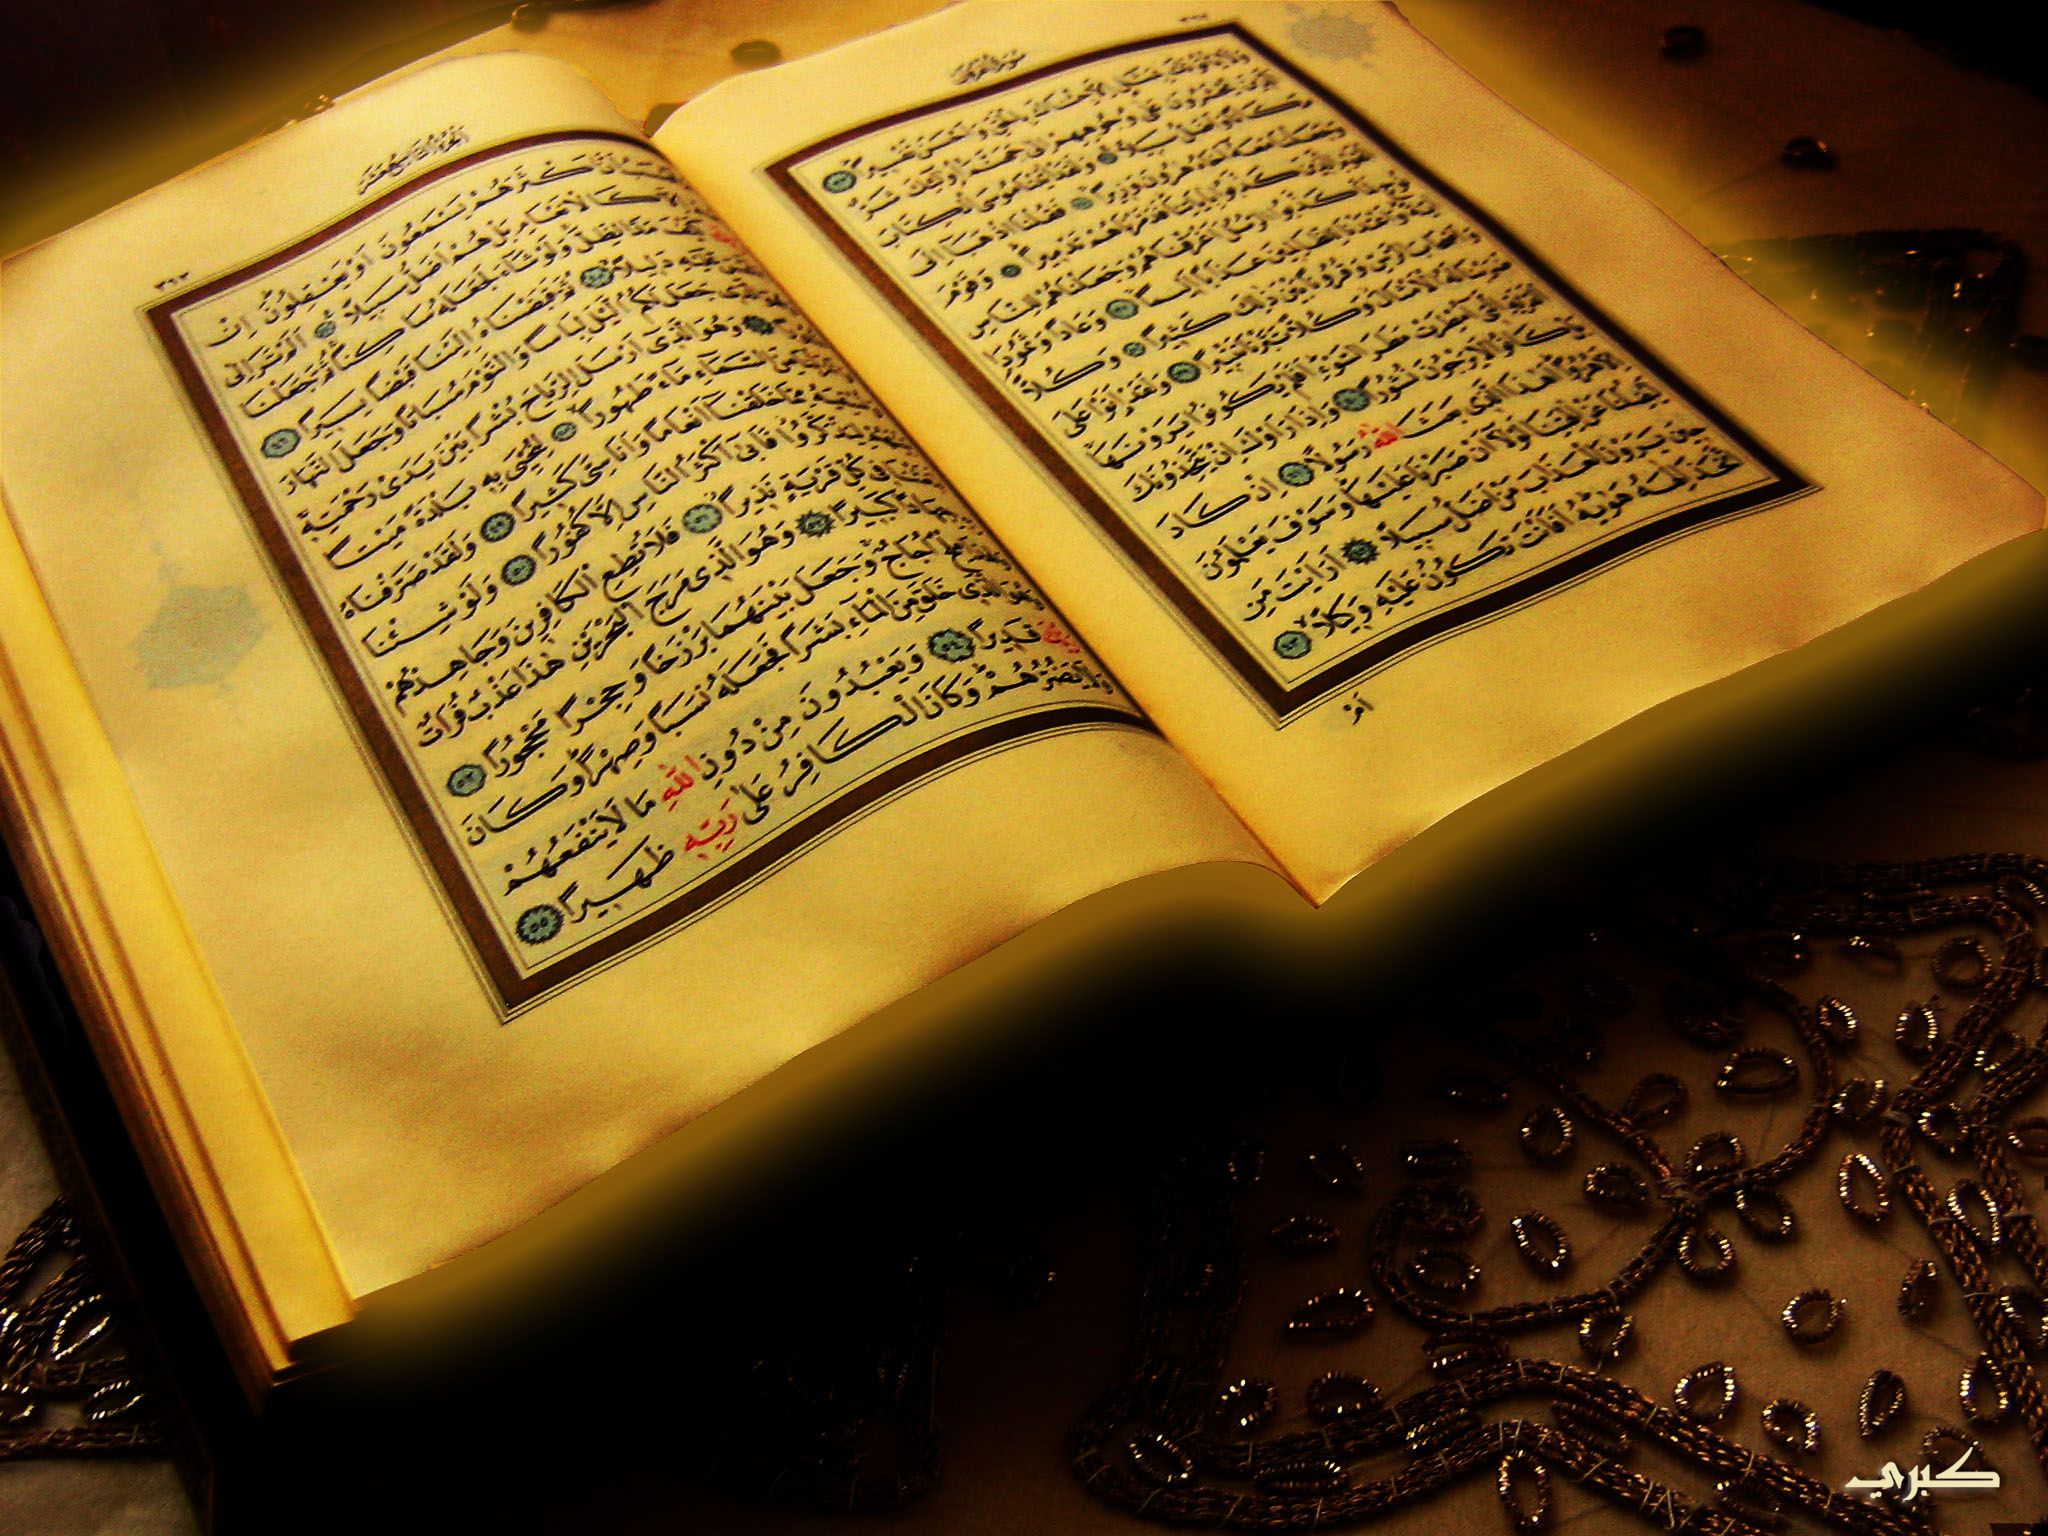 سورة الفرقان
وَلَا يَأْتُونَكَ بِمَثَلٍ اِلَّا جِئْنَاكَ بِالْحَقِّ وَاَحْسَنَ تَفْسِيرًا
اَلَّذِينَ يُحْشَرُونَ عَلٰى وُجُوهِهِمْ اِلٰى جَهَنَّمَ اُولٰٓئِكَ شَرٌّ
مَكَانًا وَاَضَلُّ سَبِيلًا وَلَقَدْ اٰتَيْنَا مُوسَى الْكِتَابَ
وَجَعَلْنَا مَعَهُ اَخَاهُ هٰرُونَ وَزِيرًا فَقُلْنَا اذْهَبَٓا اِلَى
الْقَوْمِ الَّذِينَ كَذَّبُوا بِاٰيَاتِنَا فَدَمَّرْنَاهُمْ تَدْمِيرًا وَقَوْمَ
نُوحٍ لَمَّا كَذَّبُوا الرُّسُلَ اَغْرَقْنَاهُمْ وَجَعَلْنَاهُمْ لِلنَّاسِ
اٰيَةً وَاَعْتَدْنَا لِلظَّالِمِينَ عَذَابًا اَلِيمًا وَعَادًا وَثَمُودَا
وَاَصْحَابَ الرَّسِّ وَقُرُونًا بَيْنَ ذٰلِكَ كَثِيرًا وَكُلًّا
ضَرَبْنَا لَهُ الْاَمْثَالَ وَكُلًّا تَبَّرْنَا تَتْبِيرًا وَلَقَدْ اَتَوْا عَلَى
الْقَرْيَةِ الَّتِٓي اُمْطِرَتْ مَطَرَ السَّوْءِ اَفَلَمْ يَكُونُوا يَرَوْنَهَا
بَلْ كَانُوا لَا يَرْجُونَ نُشُورًا وَاِذَا رَاَوْكَ اِنْ يَتَّخِذُونَكَ
اِلَّا هُزُوًا اَهٰذَا الَّذِي بَعَثَ اللّٰهُ رَسُولًا اِنْ كَادَ
لَيُضِلُّنَا عَنْ اٰلِهَتِنَا لَوْلَٓا اَنْ صَبَرْنَا عَلَيْهَا وَسَوْفَ يَعْلَمُونَ
حِينَ يَرَوْنَ الْعَذَابَ مَنْ اَضَلُّ سَبِيلًا اَرَاَيْتَ مَنِ
اتَّخَذَ اِلٰهَهُ هَوٰيهُ اَفَاَنْتَ تَكُونُ عَلَيْهِ وَكِيلًا
اَمْ
٣٦٢
اَنَّ اَكْثَرَهُمْ يَسْمَعُونَ اَوْ يَعْقِلُونَ اِنْ
كَالْاَنْعَامِ بَلْ هُمْ اَضَلُّ سَبِيلًا اَلَمْ تَرَ اِلٰى
مَدَّ الظِّلَّ وَلَوْ شَٓاءَ لَجَعَلَهُ سَاكِنًا ثُمَّ جَعَلْنَا
عَلَيْهِ دَلِيلًا ثُمَّ قَبَضْنَاهُ اِلَيْنَا قَبْضًا يَسِيرًا
جَعَلَ لَكُمُ الَّيْلَ لِبَاسًا وَالنَّوْمَ سُبَاتًا وَجَعَلَ النَّهَارَ
وَهُوَ الَّذِٓي اَرْسَلَ الرِّيَاحَ بُشْرًا بَيْنَ يَدَيْ رَحْمَتِهِ
السَّمَٓاءِ مَٓاءً طَهُورًا لِنُحْيِيَ بِهِ بَلْدَةً مَيْتًا
خَلَقْنَٓا اَنْعَامًا وَاَنَاسِيَّ كَثِيرًا وَلَقَدْ صَرَّفْنَاهُ
فَاَبٰٓى اَكْثَرُ النَّاسِ اِلَّا كُفُورًا وَلَوْ شِئْنَا
فِي كُلِّ قَرْيَةٍ نَذِيرًا فَلَا تُطِعِ الْكَافِرِينَ وَجَاهِدْهُمْ
كَبِيرًا وَهُوَ الَّذِي مَرَجَ الْبَحْرَيْنِ هٰذَا عَذْبٌ فُرَاتٌ
اُجَاجٌ وَجَعَلَ بَيْنَهُمَا بَرْزَخًا وَحِجْرًا مَحْجُورًا
الَّذِي خَلَقَ مِنَ الْمَٓاءِ بَشَرًا فَجَعَلَهُ نَسَبًا وَصِهْرًا وَكَانَ
رَبُّكَ قَدِيرًا وَيَعْبُدُونَ مِنْ دُونِ اللّٰهِ مَا لَا يَنْفَعُهُمْ
وَلَا يَضُرُّهُمْ وَكَانَ الْكَافِرُ عَلٰى رَبِّهِ ظَهِيرًا
كبري